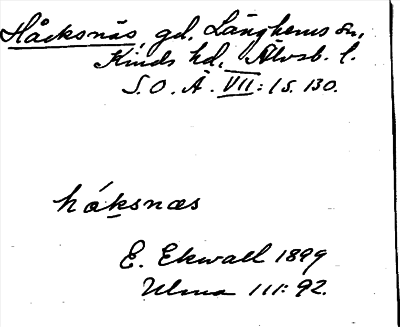 Håcksnäs, gd, Länghems sn,
Kinds hd, Älvsb. l.
S. O. Ä. VII: 1 s. 130.
håksnæs
E. Ekwall 1899
Ulma 111: 92.